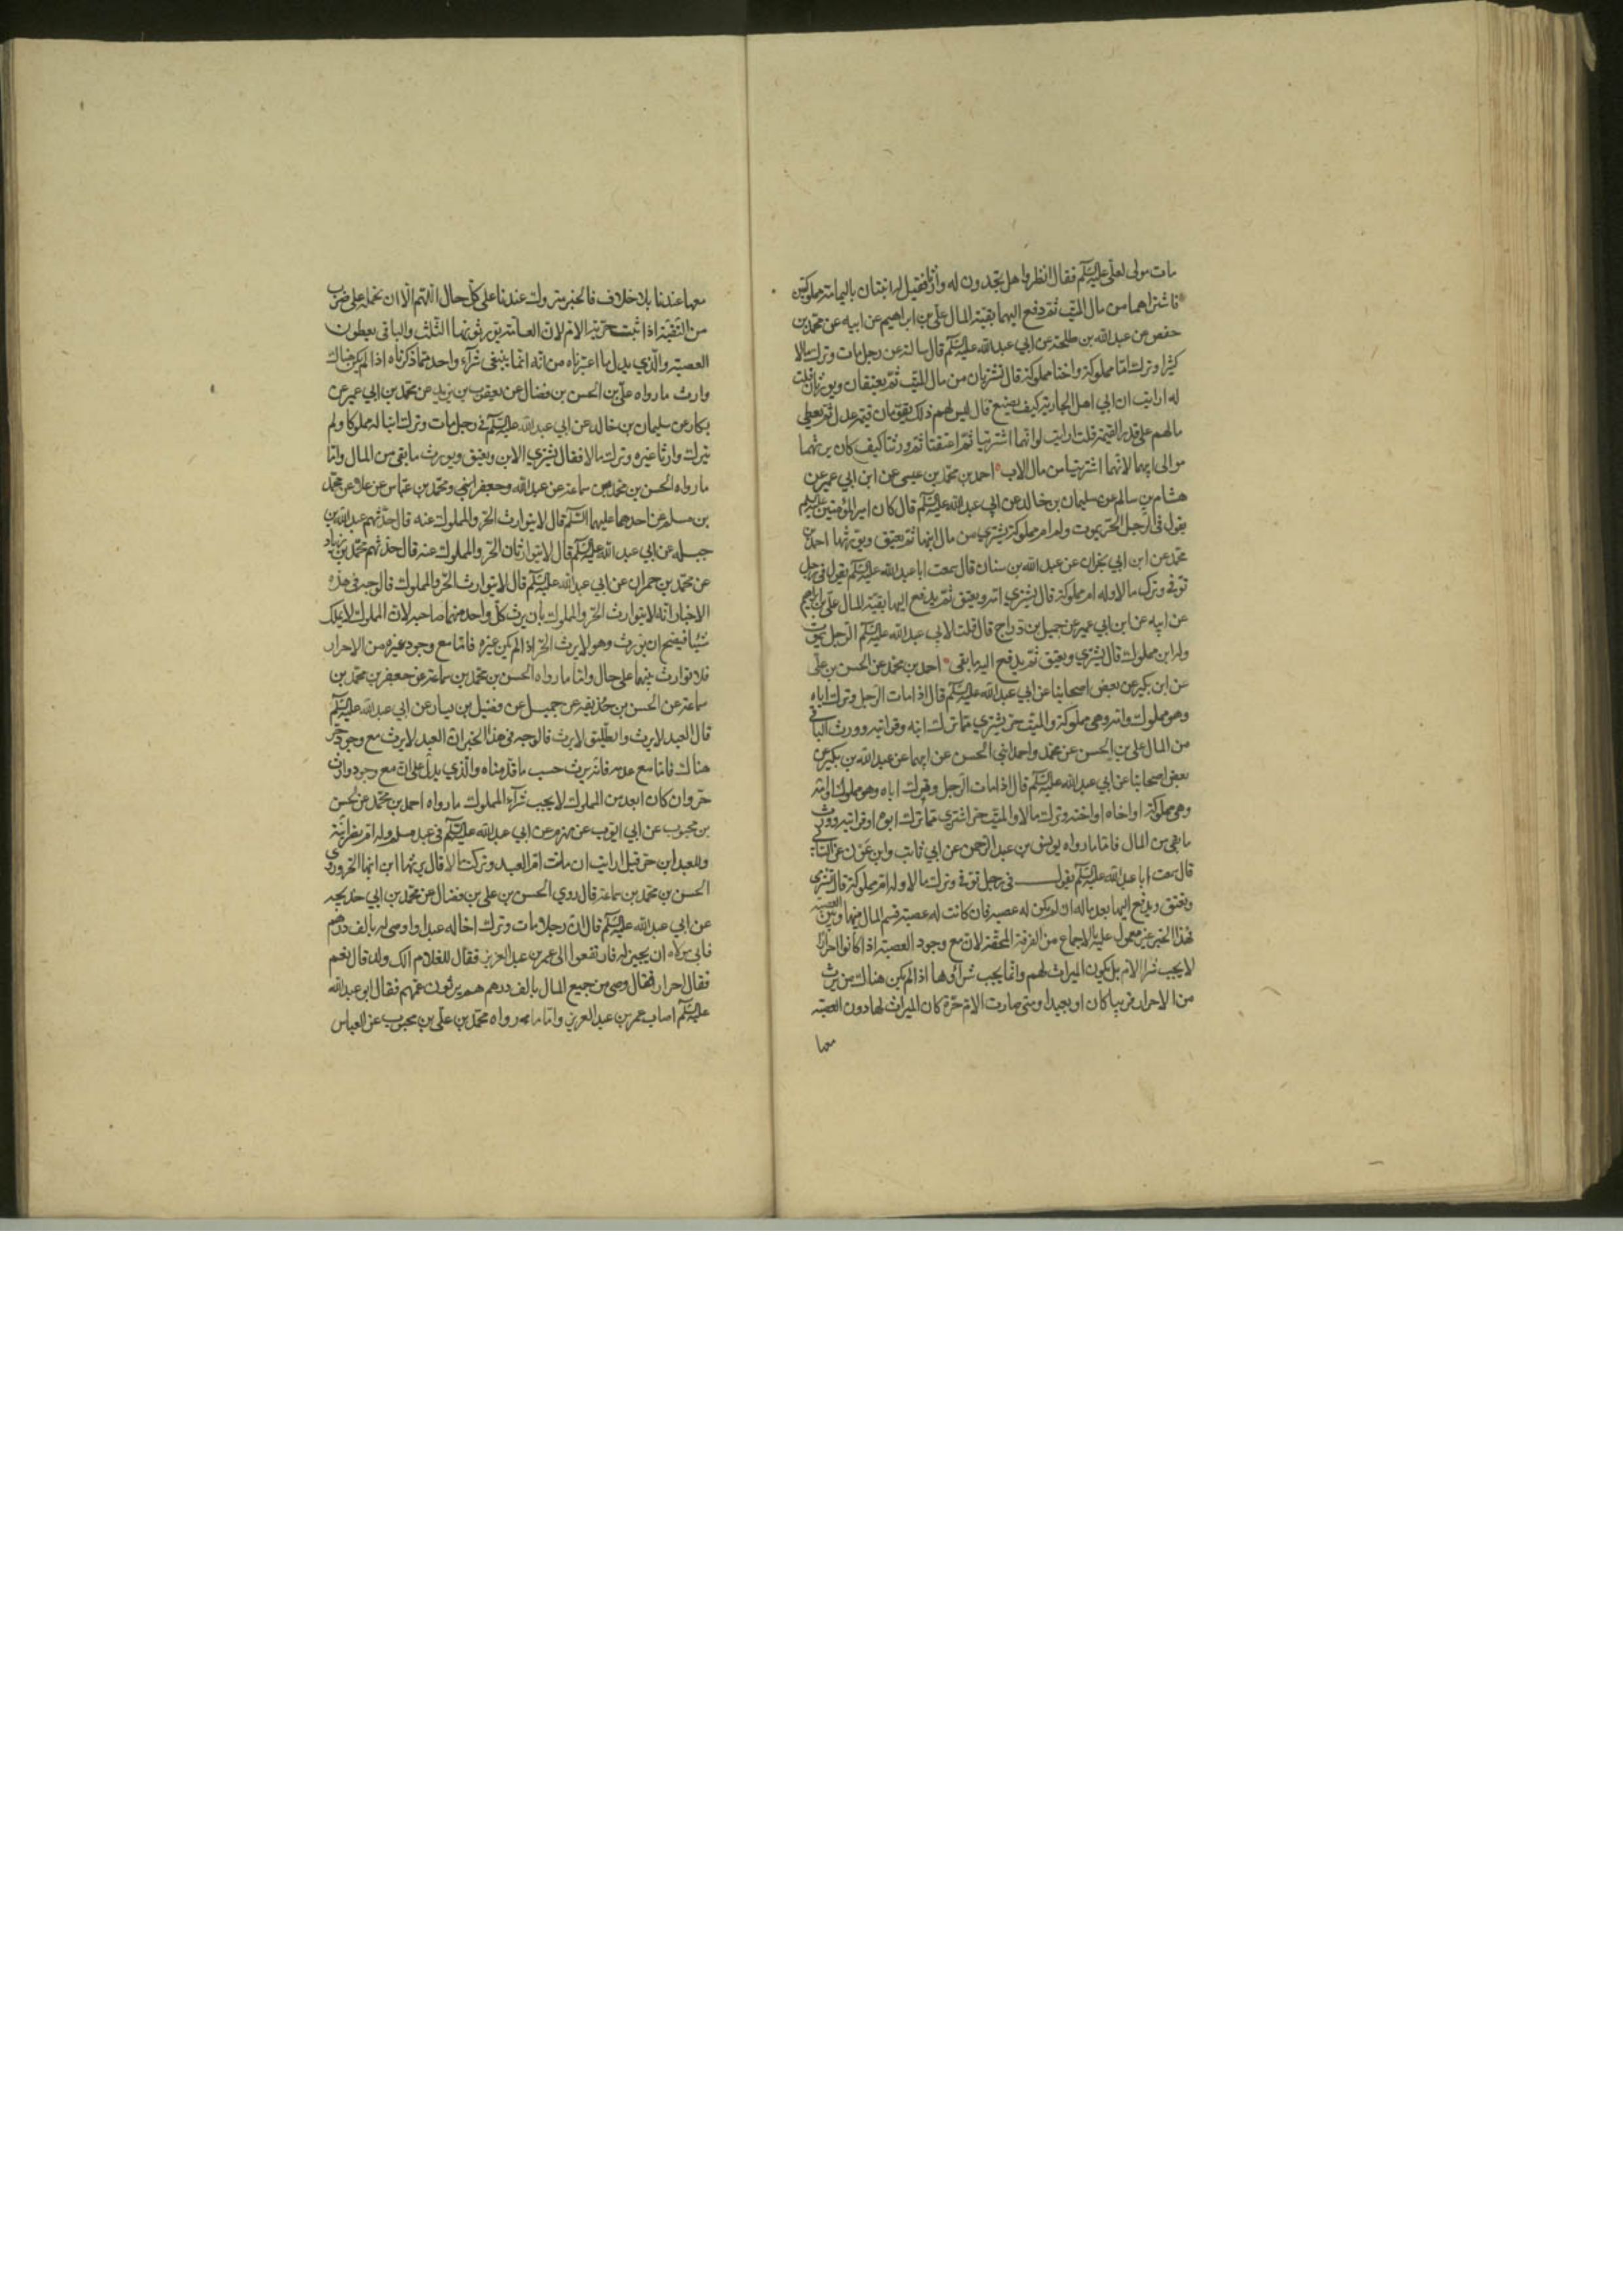 مات مولى لعلي عليه السلم فقال انظروا هل تجدون له وارثا فقيل له ابنتان باليمامة مملوكتين
فاشتراهما من مال الميت ثم دفع اليهما بقية المال علي بن ابراهيم عن ابيه عن محمد بن
حفص عن عبد الله بن طلحة عن ابي عبد الله عليه السلم قال سالته عن رجل مات وترك مالا
كثيرا وترك اما مملوكة واختا مملوكة قال تشتريان من مال الميت ثم يعتقان ويورثان قلت
له ارايت ان ابى اهل الجارية كيف يصنع قال ليس لهم ذلك يقومان قيمة عدل ثم يعطى
مالهم على قدر القيمة قلت ارايت لو انهما اشتريا ثم اعتقتا ثم ورثتا كيف كان يرثهما
موالى ابيهما لانهما اشتريتا من مال الاب احمد بن محمد بن عيسى عن ابن ابي عمير عن
هشام بن سالم عن سليمان بن خالد عن ابي عبد الله عليه السلم قال كان امير المؤمنين عليه السلم
يقول في الرجل الحر يموت وله ام مملوكة تشترى من مال ابنها ثم تعتق ويورثها احمد بن
محمد عن ابن ابي نجران عن عبد الله بن سنان قال سمعت ابا عبد الله عليه السلم يقول في رجل
توفي وترك مالا وله ام مملوكة قال يشتري امه ويعتق ثم يدفع اليها بقية المال علي بن ابراهيم
عن ابيه عن ابن ابي عمير عن جميل بن دراج قال قلت لابي عبد الله عليه السلم الرجل يموت
وله ابن مملوك قال يشتري ويعتق ثم يدفع اليه ما بقى احمد بن محمد عن الحسن بن علي
عن ابن بكير عن بعض اصحابنا عن ابي عبد الله عليه السلم قال اذا مات الرجل وترك اباه
وهو مملوك وامه وهي مملوكة والميت حر يشتري مما ترك ابنه وقرابته وورث الباقي
من المال علي بن الحسن عن محمد واحمد ابني الحسن عن ابيهما عن عبد الله بن بكير عن
بعض اصحابنا عن ابي عبد الله عليه السلم قال اذا مات الرجل وترك اباه وهو مملوك او امه
وهي مملوكة او اخاه او اخته وترك مالا والميت حر اشتري مما ترك ابوه او قرابته وورث
ما بقي من المال فاما ما رواه يونس بن عبد الرحمن عن ابي ثابت وابن عون عن السائي
قال سمعت ابا عبد الله عليه السلم يقول في رجل توفي وترك مالا وله ام مملوكة قال تشترى
وتعتق ويدفع اليها بعد ماله ان لم يكن له عصبة فان كانت له عصبة قسم المال بينها وبين العصبة
فهذا الخبر غير معمول عليه بالاجماع من الفرقة المحقة لان مع وجود العصبة اذا كانوا احرارا
لا يجب شرا الام بل يكون الميراث لهم وانما يجب شراؤها اذا لم يكن هناك من يرث
من الاحرار قريبا كان او بعيدا ومتى صارت الام حرة كان الميراث لها دون العصبة
معها
معها عندنا بلا خلاف فالخبر متروك عندنا على كل حال اللهم الا ان نحمله على ضرب
من التقية اذا ثبت حرية الام لان العامة يورثونها الثلث والباقي يعطون
العصبة والذي يدل ما اعتبرناه من انه انما ينبغي شرآء واحد مما ذكرناه اذا لم يكن هناك
وارث ما رواه علي بن الحسن بن فضال عن يعقوب بن يزيد عن محمد بن ابي عمير عن
بكار عن سليمان بن خالد عن ابي عبد الله عليه السلم في رجل مات وترك ابنا له مملوكا ولم
يترك وارثا غيره وترك مالا فقال يشتري الابن ويعتق ويورث ما بقي من المال واما
ما رواه الحسن بن محمد بن سماعة عن عبد الله وجعفر ابني ومحمد بن عباس عن علاء عن محمد
بن مسلم عن احدهما عليهما السلم قال لا يتوارث الحر والمملوك عنه قال حدثهم عبد الله بن
جبلة عن ابي عبد الله عليه السلم قال لا يتوارثان الحر والمملوك عنه قال حدثهم محمد بن زياد
عن محمد بن حمران عن ابي عبد الله عليه السلم قال لا يتوارث الحر والمملوك فالوجه في هذه
الاخبار انه لا يتوارث الحر والمملوك بان يرث كل واحد منهما صاحبه لان المملوك لا يملك
شيئا فيصح ان يورث وهو لا يرث الحر اذا لم يكن غيره فاما مع وجود غيره من الاحرار
فلا توارث بينهما على حال واما ما رواه الحسن بن محمد بن سماعة عن جعفر بن محمد بن
سماعة عن الحسن بن حذيفة عن جميل عن فضيل بن يسار عن ابي عبد الله عليه السلم
قال العبد لا يرث والطليق لا يرث فالوجه في هذا الخبر ان العبد لا يرث مع وجود حر
هناك فاما مع عدمه فانه يرث حسب ما قدمناه والذي يدل على ان مع وجود وارث
حر وان كان ابعد من المملوك لا يجب شرآء المملوك ما رواه احمد بن محمد عن الحسن
بن محبوب عن ابي ايوب عن مهزم عن ابي عبد الله عليه السلم في عبد مسلم وله ام نصرانية
وللعبد ابن حر قيل ارايت ان ماتت ام العبد وتركت مالا قال يرثها ابن ابنها الحر وروى
الحسن بن محمد بن سماعة قال روى الحسن بن علي بن فضال عن محمد بن ابي خديجة
عن ابي عبد الله عليه السلم قال ان رجلا مات وترك اخا له عبدا واوصى له بالف درهم
فابى مولاه ان يجيز له فارتفعوا الى عمر بن عبد العزيز فقال للغلام الك ولد قال نعم
فقال احرار فقال وصى من جميع المال بالف درهم هم يرثون عمهم فقال ابو عبد الله
عليه السلم اصاب عمر بن عبد العزيز واما ما رواه محمد بن علي بن محبوب عن العباس